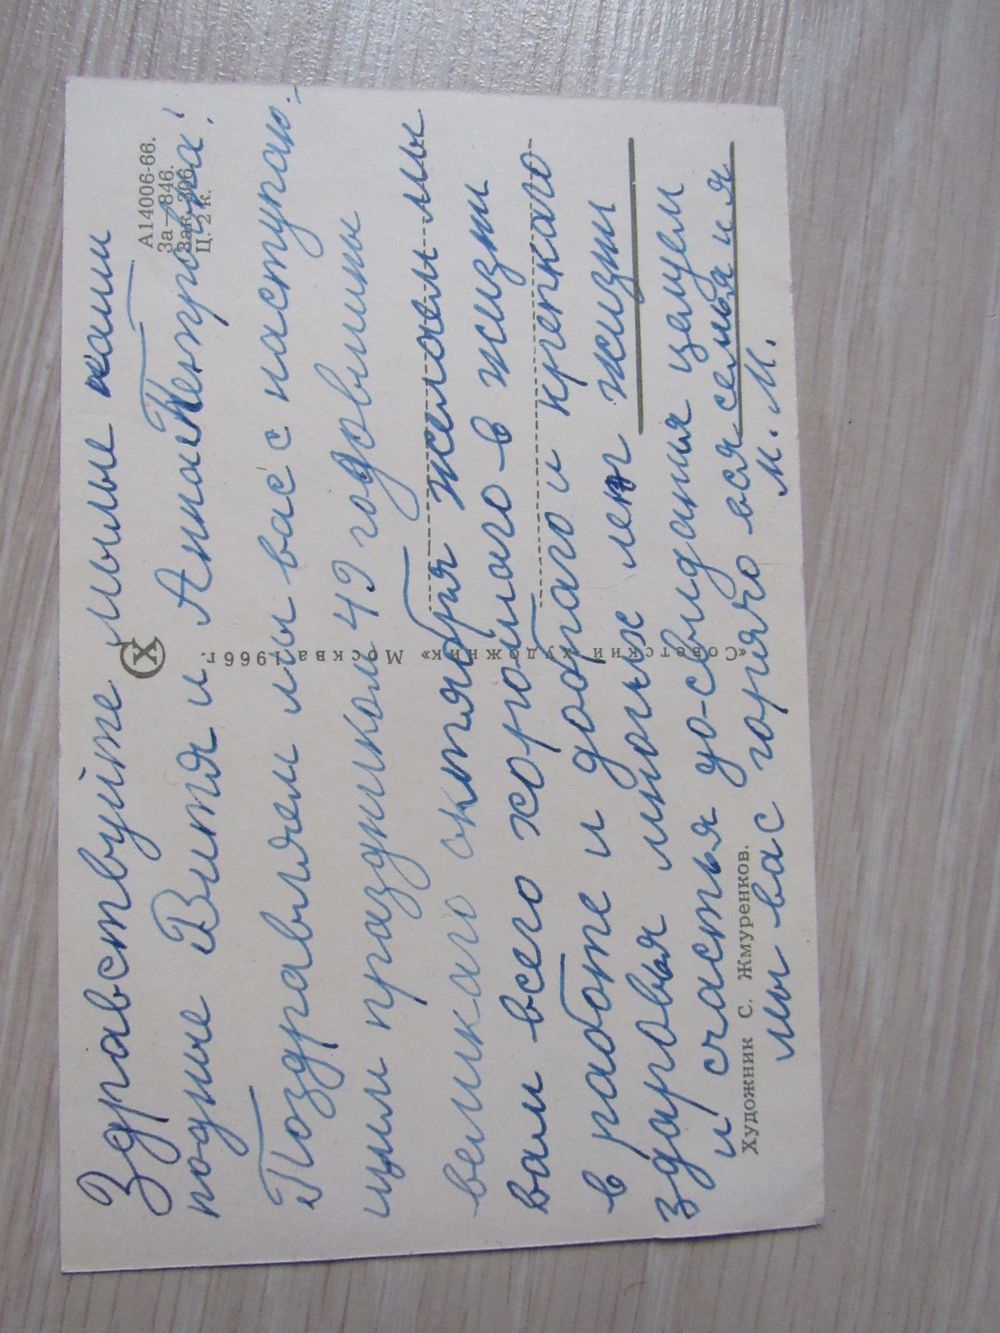 Здравствуйте милые наши
родные Витя и Анна Пентровна!
Поздравляем мы вас с наступаю-
щим праздником 49 годовлини
великаго октября желаем мы
вам всего хорошаго в жизни
в работе и дооргаго и крепкаго
здаровья многых лет жизни
и счастья до-свидания целуем
мы вас горячо вся семья и я
М. М.
А14006-66.
За —846.
Зак. 306.
Ц. 2 к.
«Советский художник» Москва 1966 г.
Художник С. Жмуренков.